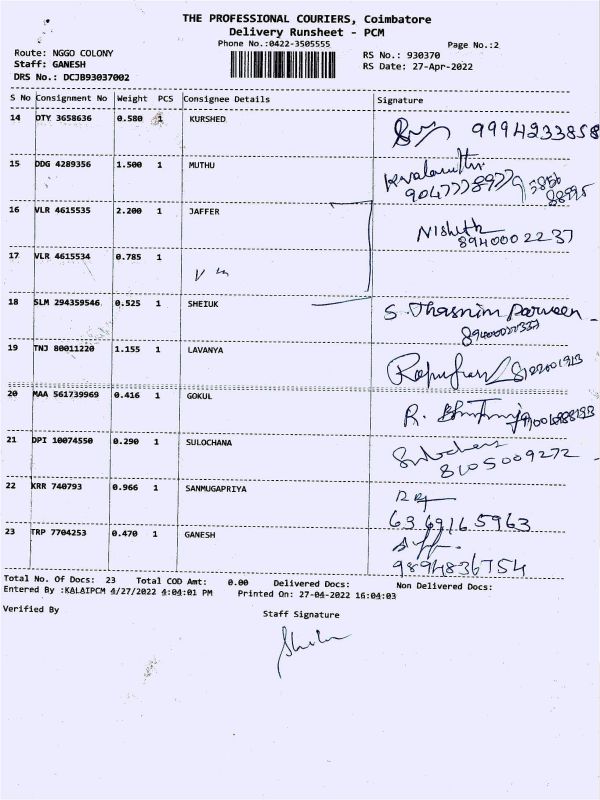 THE PROFESSIONAL COURIERS, Coimbatore
Delivery Runsheet - PCM
Phone No.:0422-3505555
Page No.:2
Route: NGGO COLONY
RS No.: 930370
Staff: GANESH
RS Date: 27-Apr-2022
DRS No.: DCJB93037002
S No Consignment No Weight PCS Consignee Details Signature
14 OTY 3658636 0.580 1 KURSHED 9994233858
15 DDG 4289356 1.500 1 MUTHU
16 VLR 4615535 2.200 1 JAFFER Nishith
8940002237
17 VLR 4615534 0.785 1
18 SLM 294359546 0.525 1 SHEIUK S. Thasnim Parveen
19 TNJ 80011220 1.155 1 LAVANYA
20 MAA 561739969 0.416 1 GOKUL R.
21 DPI 10074550 0.290 1 SULOCHANA
8105009272
22 KRR 740793 0.966 1 SANMUGAPRIYA
6369165963
23 TRP 7704253 0.470 1 GANESH
9894836754
Total No. Of Docs: 23 Total COD Amt: 0.00 Delivered Docs: Non Delivered Docs:
Entered By :KALAIPCM 4/27/2022 4:04:01 PM Printed On: 27-04-2022 16:04:03
Verified By
Staff Signature